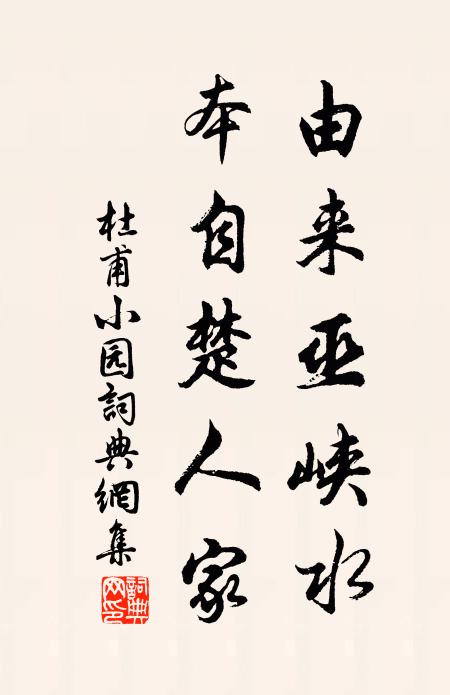 由来巫峡水
本自楚人家
杜甫小园詞典網集
詞典网印